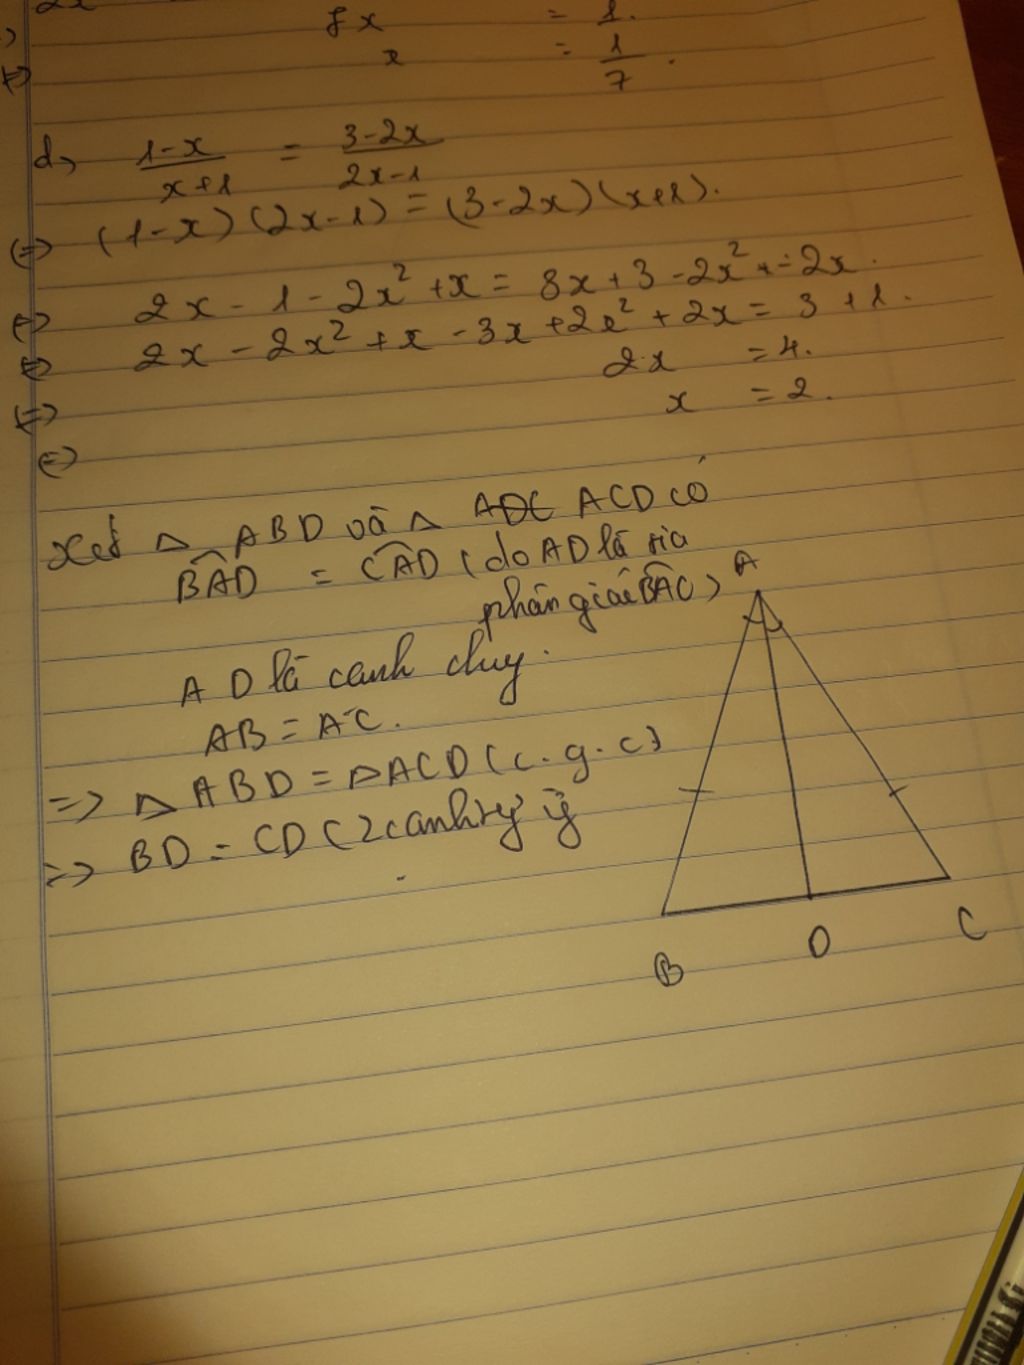 2x
7x = 1.
x = 1/7.
d, (1-x)/(x+1) = (3-2x)/(2x-1)
(=) (1-x)(2x-1) = (3-2x)(x+1).
(=) 2x - 1 - 2x² + x = 3x + 3 - 2x² - 2x.
(=) 2x - 2x² + x - 3x + 2x² + 2x = 3 + 1.
(=) 2x = 4.
(=) x = 2.
Xét △ ABD và △ ACD có
BAD = CAD (do AD là tia
phân giác BAC)
AD là cạnh chung.
AB = AC.
=> △ABD = △ACD (c.g.c)
=> BD = CD (2 cạnh tương ứng
A
B D C